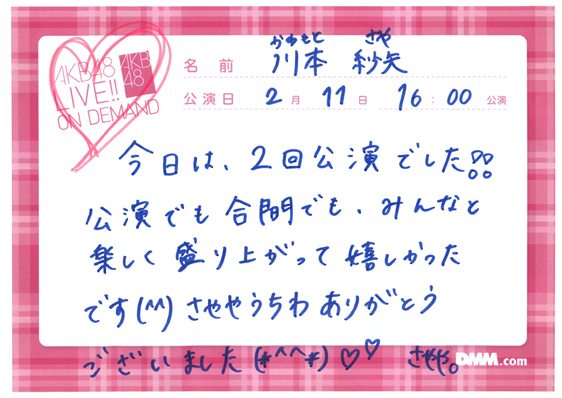 AKB48
LIVE!!
ON DEMAND
AKB
48
かわもと さや
名前 川本 紗矢
公演日 2月11日 16:00公演
今日は、2回公演でした!!
公演でも合間でも、みんなと
楽しく盛り上がって嬉しかった
です(^^) さややうちわありがとう
ございました(*^^*)♡♡ さやや。
DMM.com